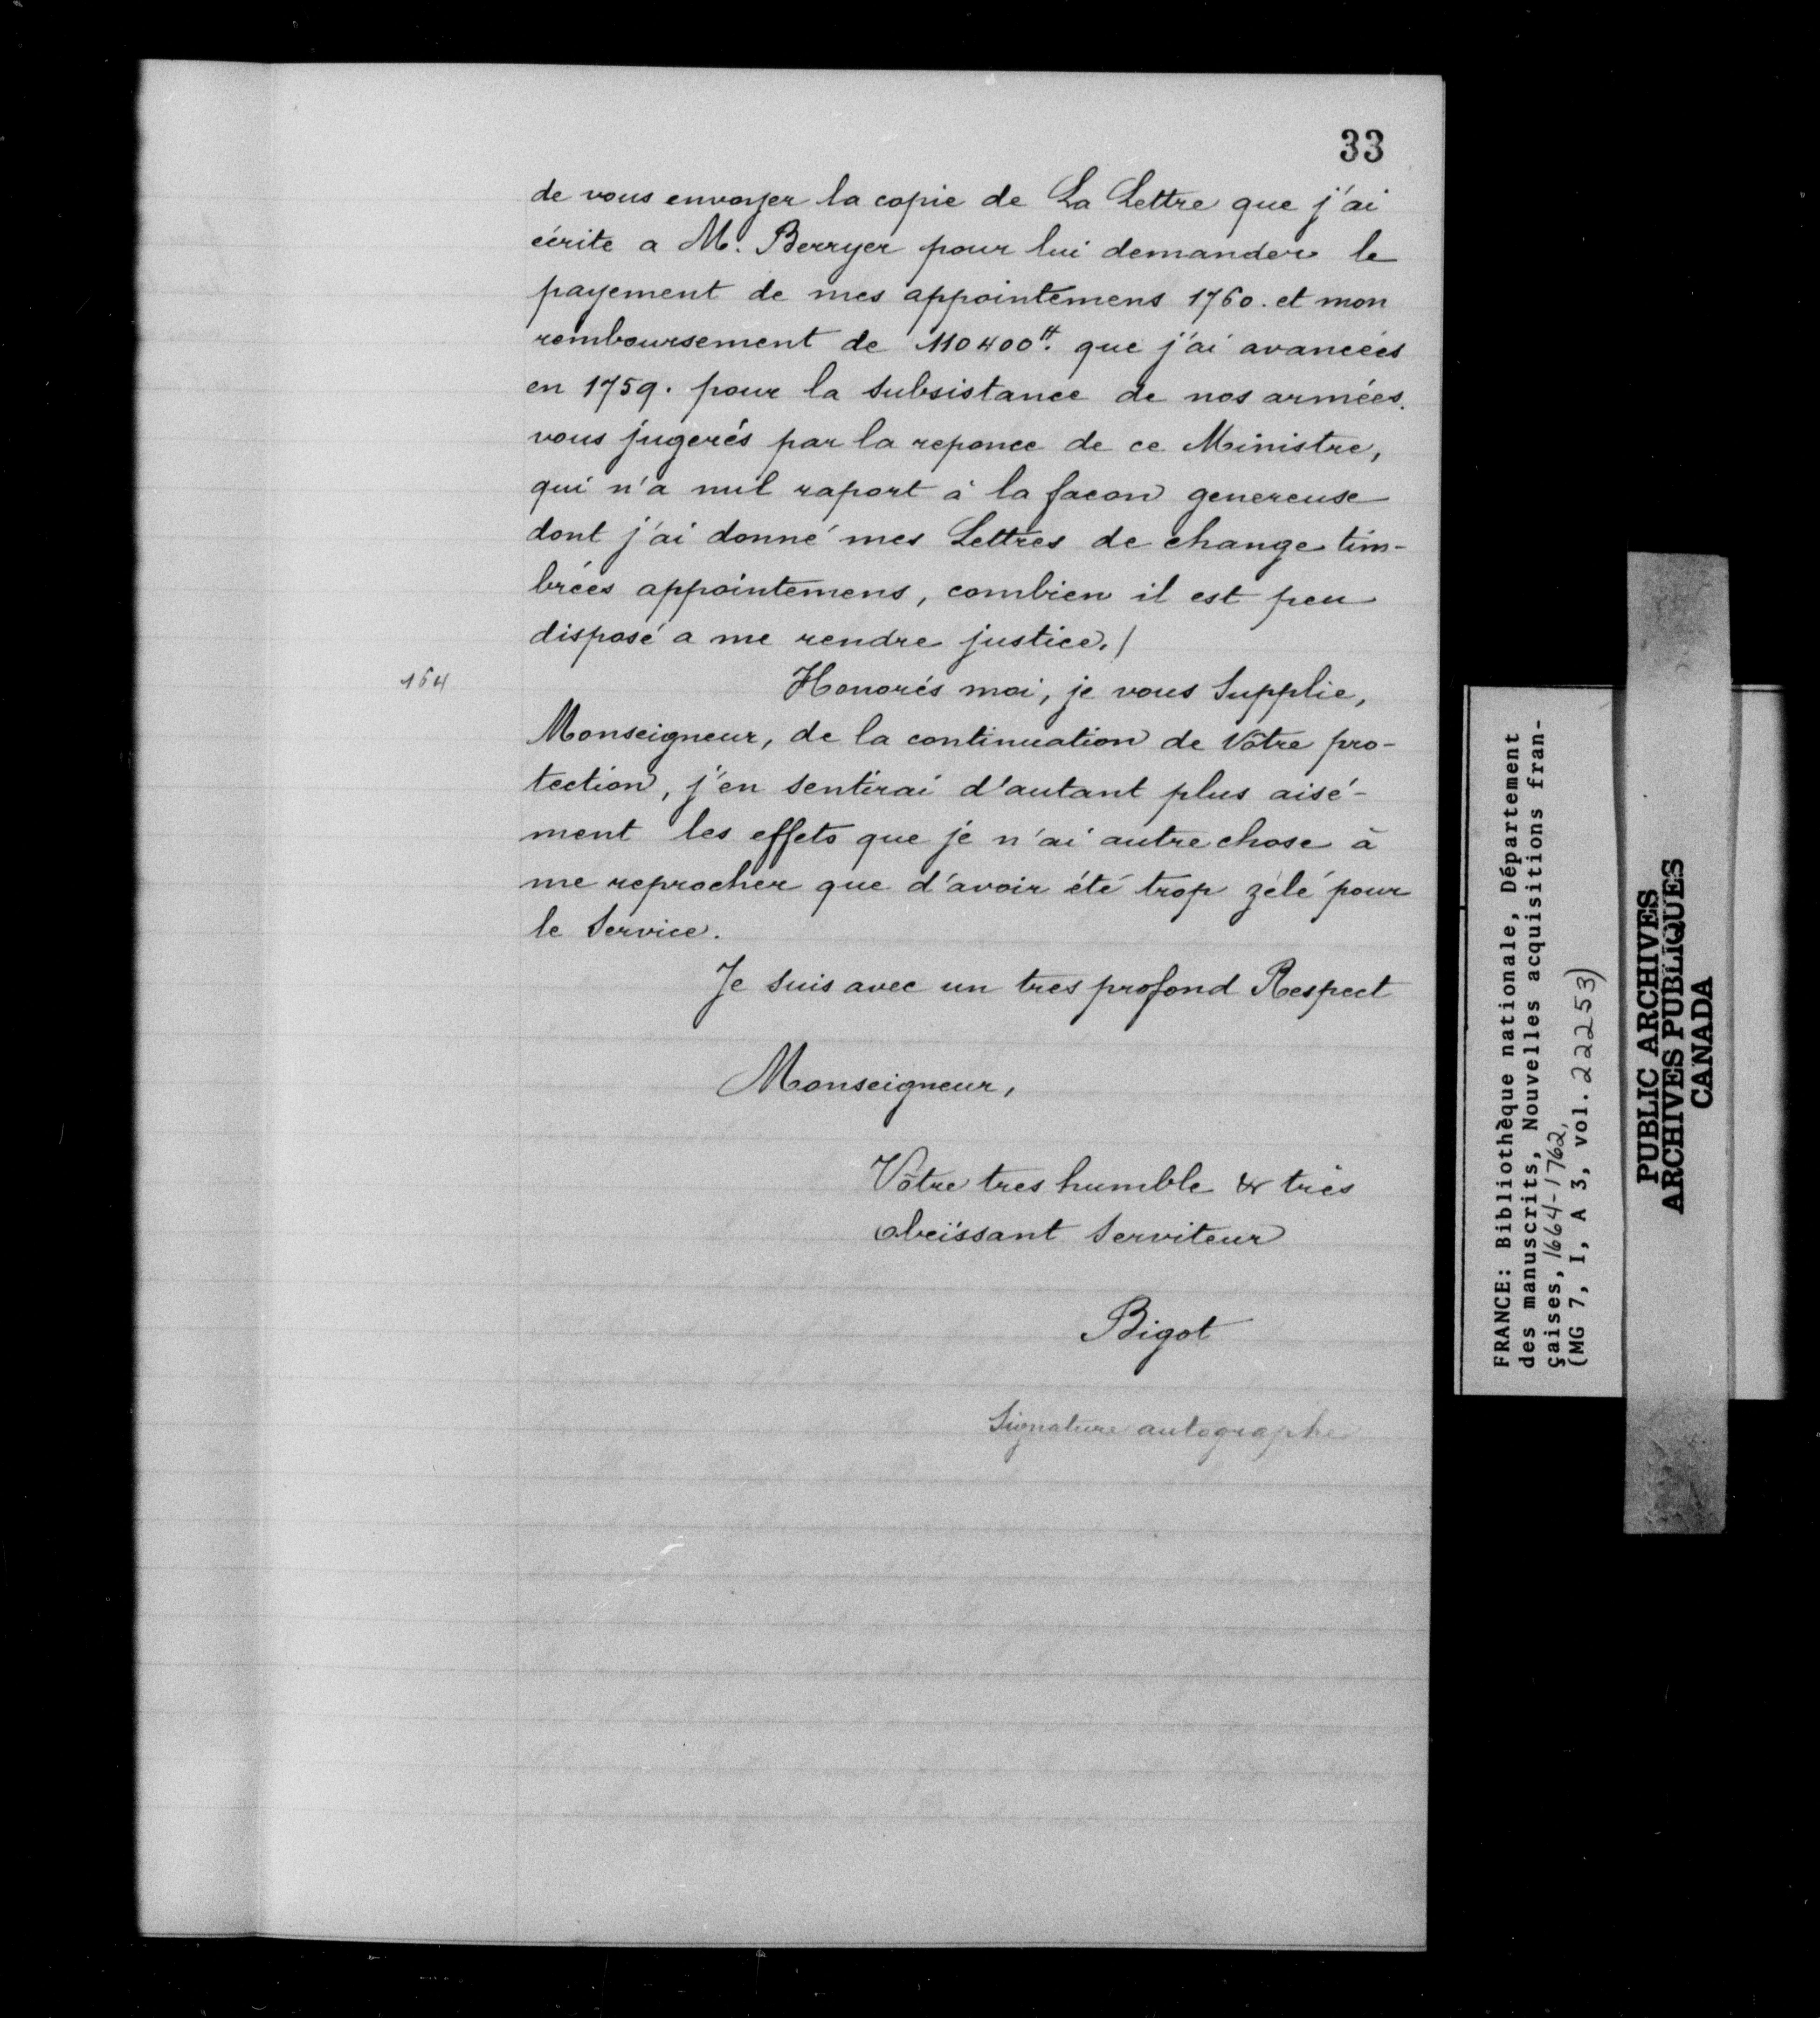 33
de vous envoyer la copie de La Lettre que j'ai
écrite a M. Berryer pour lui demander le
payement de mes appointemens 1760. et mon
remboursement de 110400tt. que j'ai avancées
en 1759. pour la subsistance de nos armées.
vous jugerés par la reponce de ce Ministre,
qui n'a nul raport à la facon genereuse
dont j'ai donné mes Lettres de change tim-
brées appointemens, combien il est peu
disposé a me rendre justice./
164
Honorés moi, je vous Supplie,
Monseigneur, de la continuation de Vôtre pro-
tection, j'en sentirai d'autant plus aisé-
ment les effets que je n'ai autre chose à
me reprocher que d'avoir été trop zélé pour
le Service.
Je suis avec un tres profond Respect
Monseigneur,
Vôtre tres humble & très
obeïssant Serviteur
Bigot
Signature autographe
FRANCE: Bibliothèque nationale, Département
des manuscrits, Nouvelles acquisitions fran-
çaises, 1664-1762,
(MG 7, I, A 3, vol. 22253)
PUBLIC ARCHIVES
ARCHIVES PUBLIQUES
CANADA